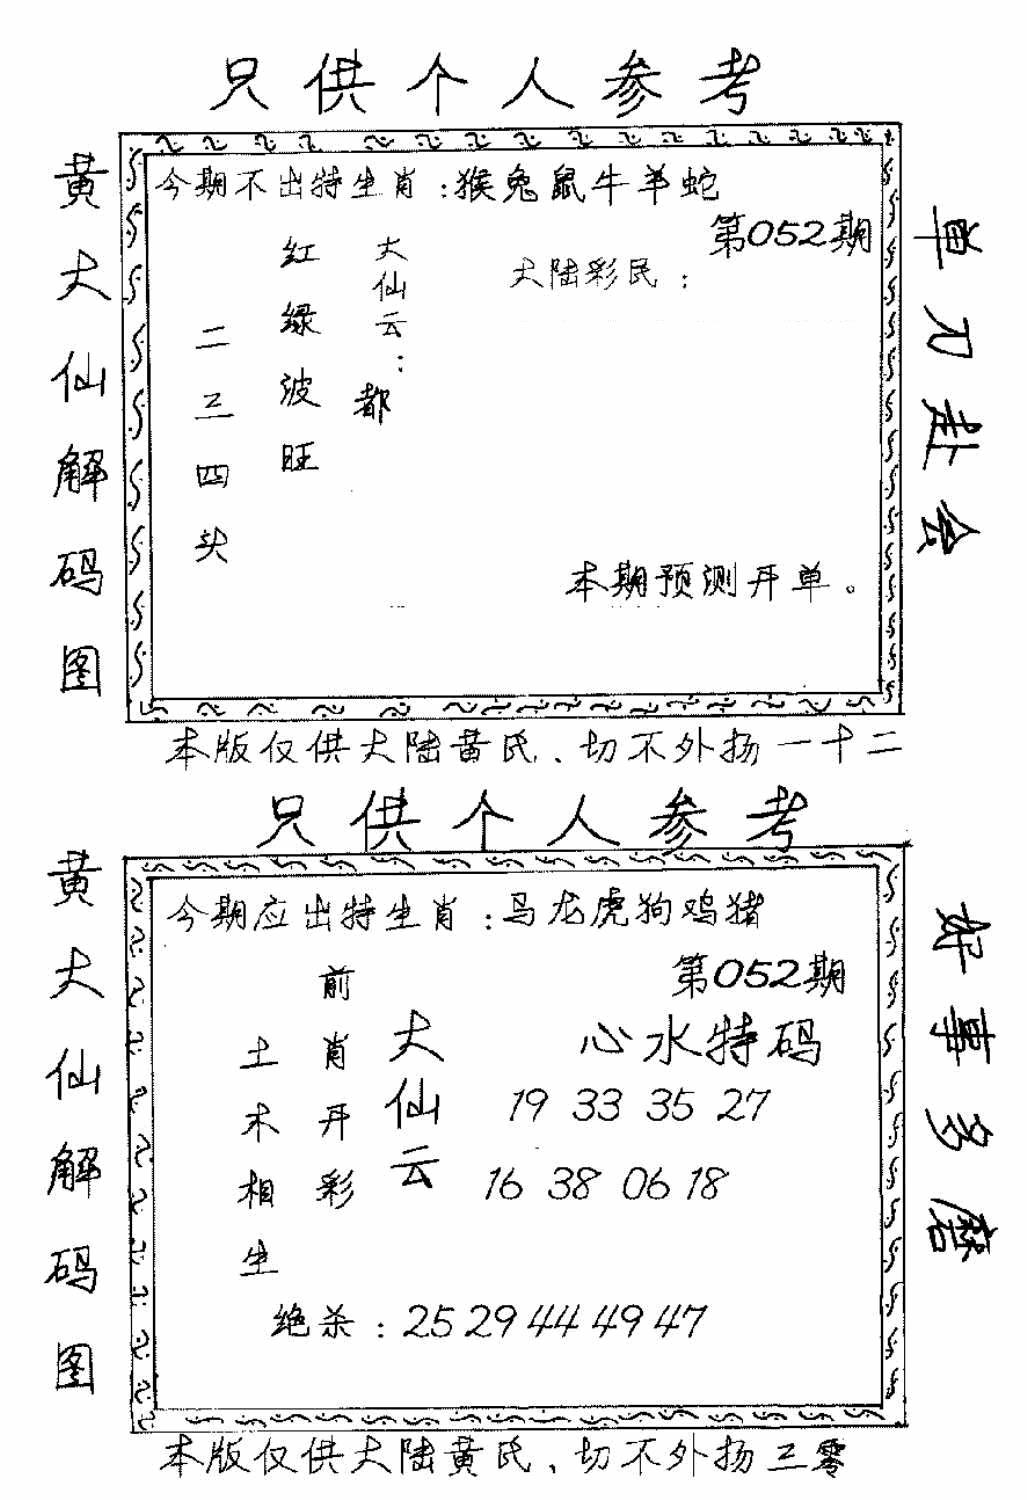 只供个人参考
黄大仙解码图
今期不出特生肖:猴兔鼠牛羊蛇
第052期
大陆彩民:
大仙云:都
红绿波旺
二三四头
本期预测开单。
单刀赴会
本版仅供大陆黄氏、切不外扬一十二
只供个人参考
黄大仙解码图
今期应出特生肖:马龙虎狗鸡猪
第052期
心水特码
19 33 35 27
16 38 06 18
大仙云
前肖开彩
土木相生
绝杀:25 29 44 49 47
好事多磨
本版仅供大陆黄氏、切不外扬三零